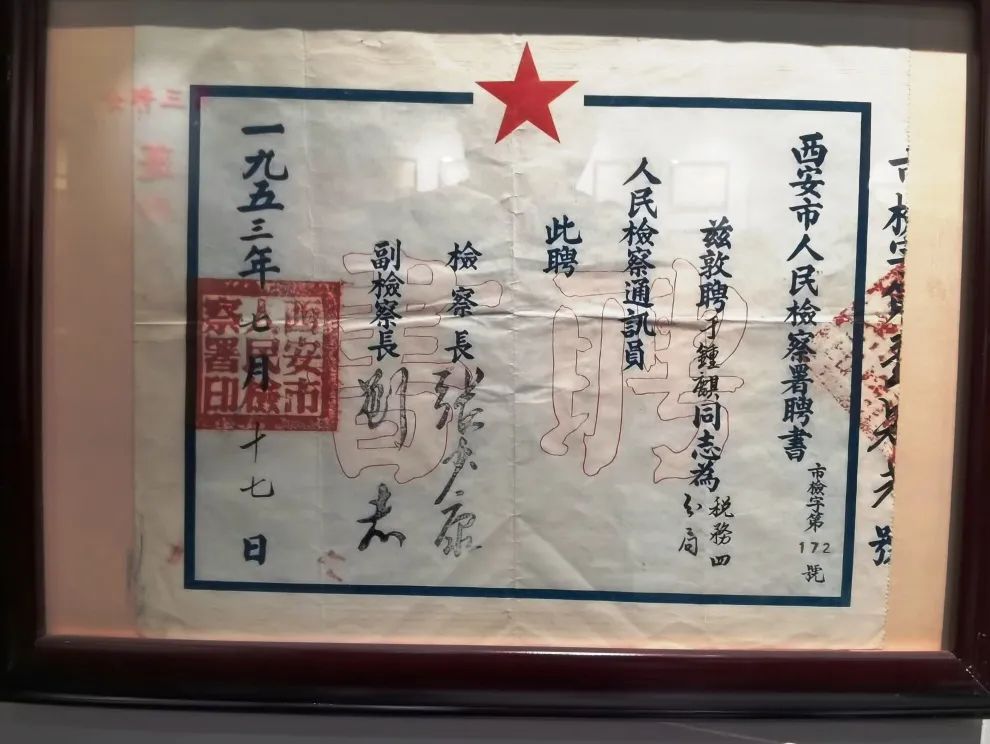 西安市人民檢察署聘書
市檢字第172號
茲敦聘于鍾麒同志為
税務四
分局
人民檢察通訊員
此聘
檢察長
副檢察長
一九五三年七月十七日
西安市人民檢察署印
聘書
市檢字第
號